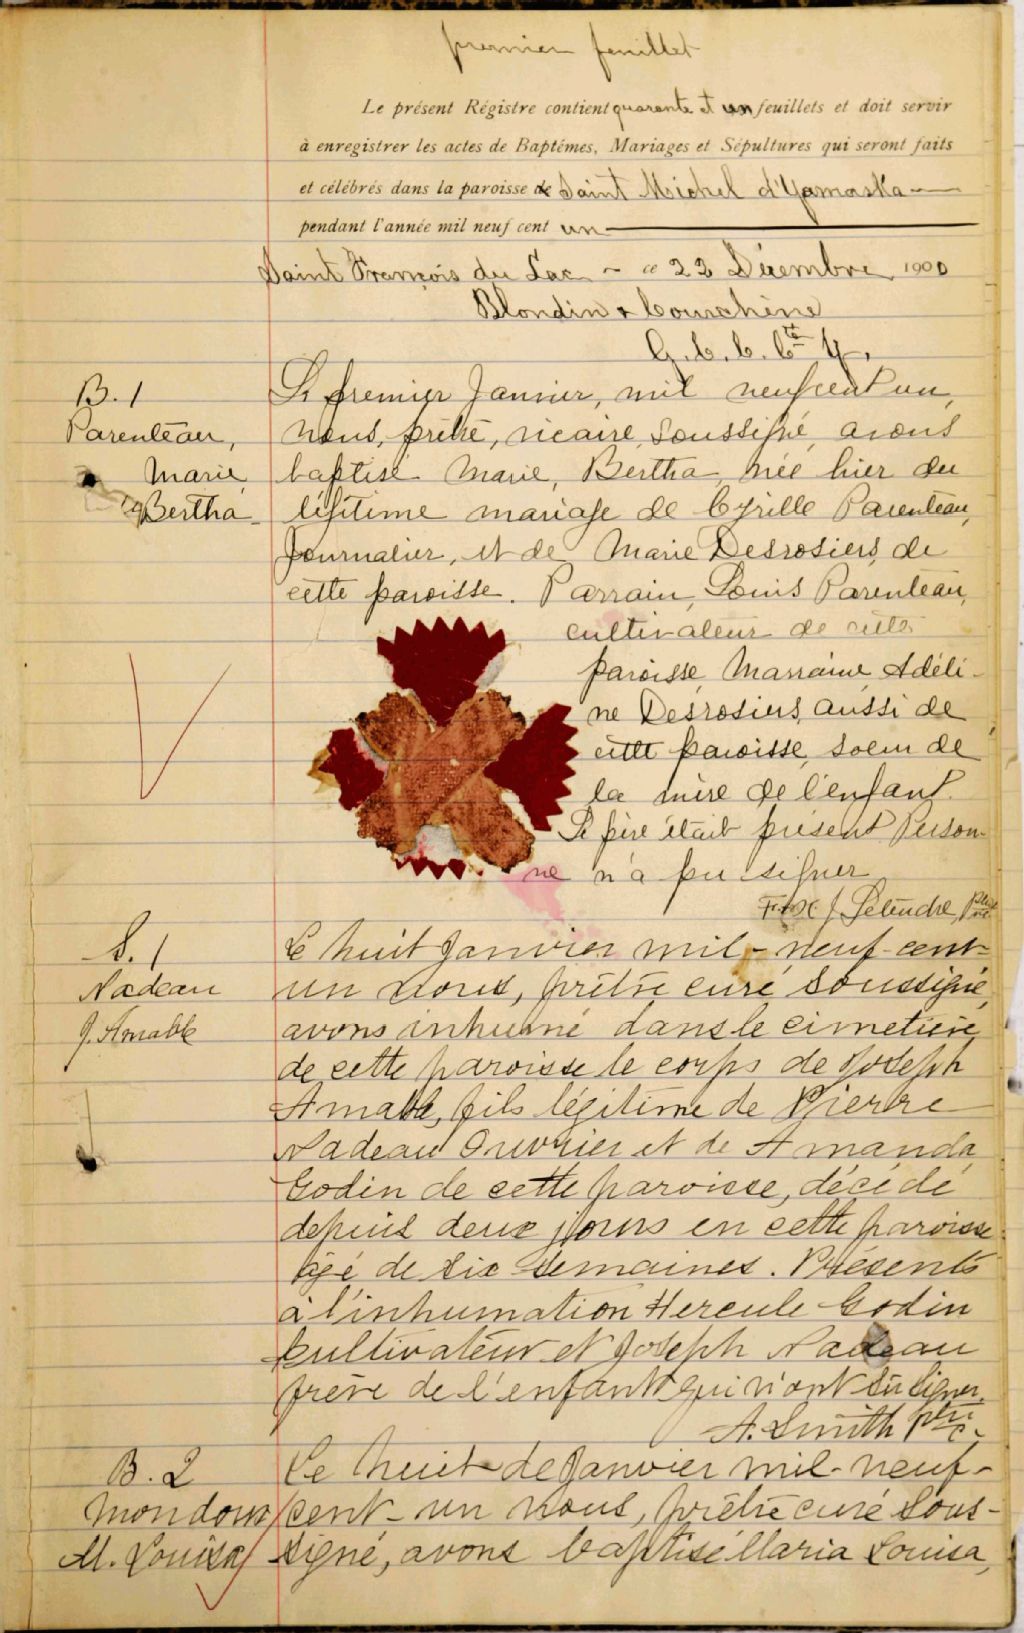 premier feuillet
Le présent Régistre contient quarante et un feuillets et doit servir
à enregistrer les actes de Baptêmes, Mariages et Sépultures qui seront faits
et célébrés dans la paroisse de Saint Michel d'Yamaska
pendant l'année mil neuf cent un
Saint François du Lac - ce 22 Décembre 1900
Blondin & Courchène
G. C. C. Cté Y.
B. 1
Parenteau,
Marie
Bertha
Le premier Janvier, mil neuf cent un,
nous, prêtre, vicaire, soussigné, avons
baptisé Marie, Bertha, née hier du
légitime mariage de Cyrille Parenteau,
Journalier, et de Marie Desrosiers, de
cette paroisse. Parrain, Louis Parenteau,
cultivateur de cette
paroisse, Marraine, Adéli-
ne Desrosiers, aussi de
cette paroisse, soeur de
la mère de l'enfant.
Le père était présent. Person-
ne n'a pu signer
J. Létendre, Ptre
S. 1
Nadeau
J. Amable
Le huit Janvier mil-neuf-cent-
un nous, prêtre curé soussigné,
avons inhumé dans le cimetière
de cette paroisse le corps de Joseph
Amable, fils légitime de Pierre
Nadeau Ouvrier et de Amanda
Godin de cette paroisse, décédé
depuis deux jours en cette paroisse
âgé de six semaines. Présents
à l'inhumation Hercule Godin
cultivateur et Joseph Nadeau
frère de l'enfant qui n'ont su signer.
A. Smith ptre c.
B. 2
Mondoux
M. Louisa
Le huit de Janvier mil-neuf-
cent-un nous, prêtre curé sous-
signé, avons baptisé Maria Louisa,